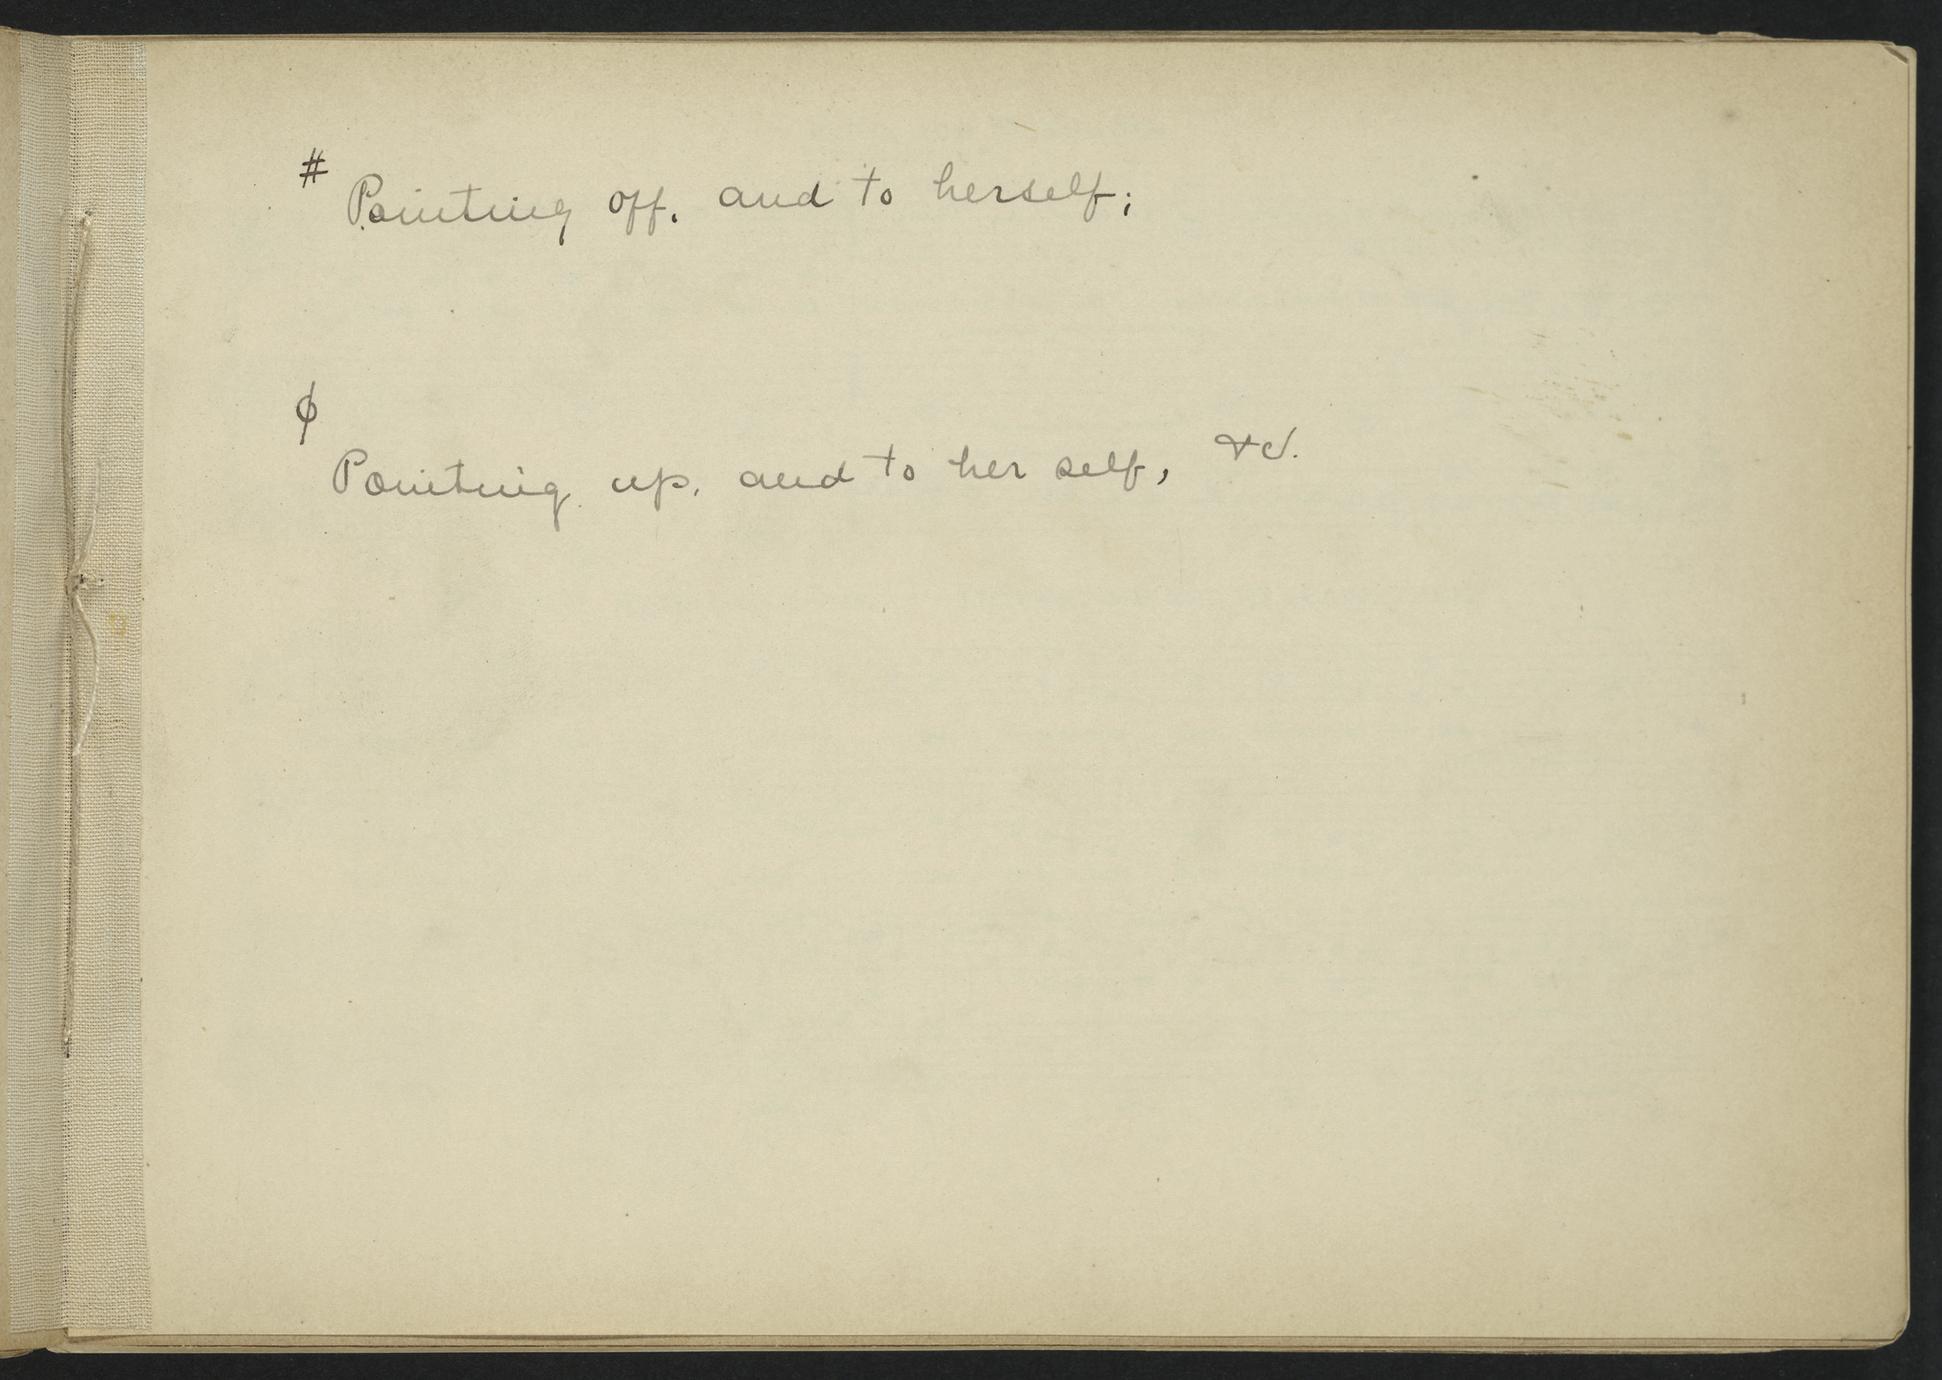 # Pointing off, and to herself;
φ
Pointing up, and to her self, &c.